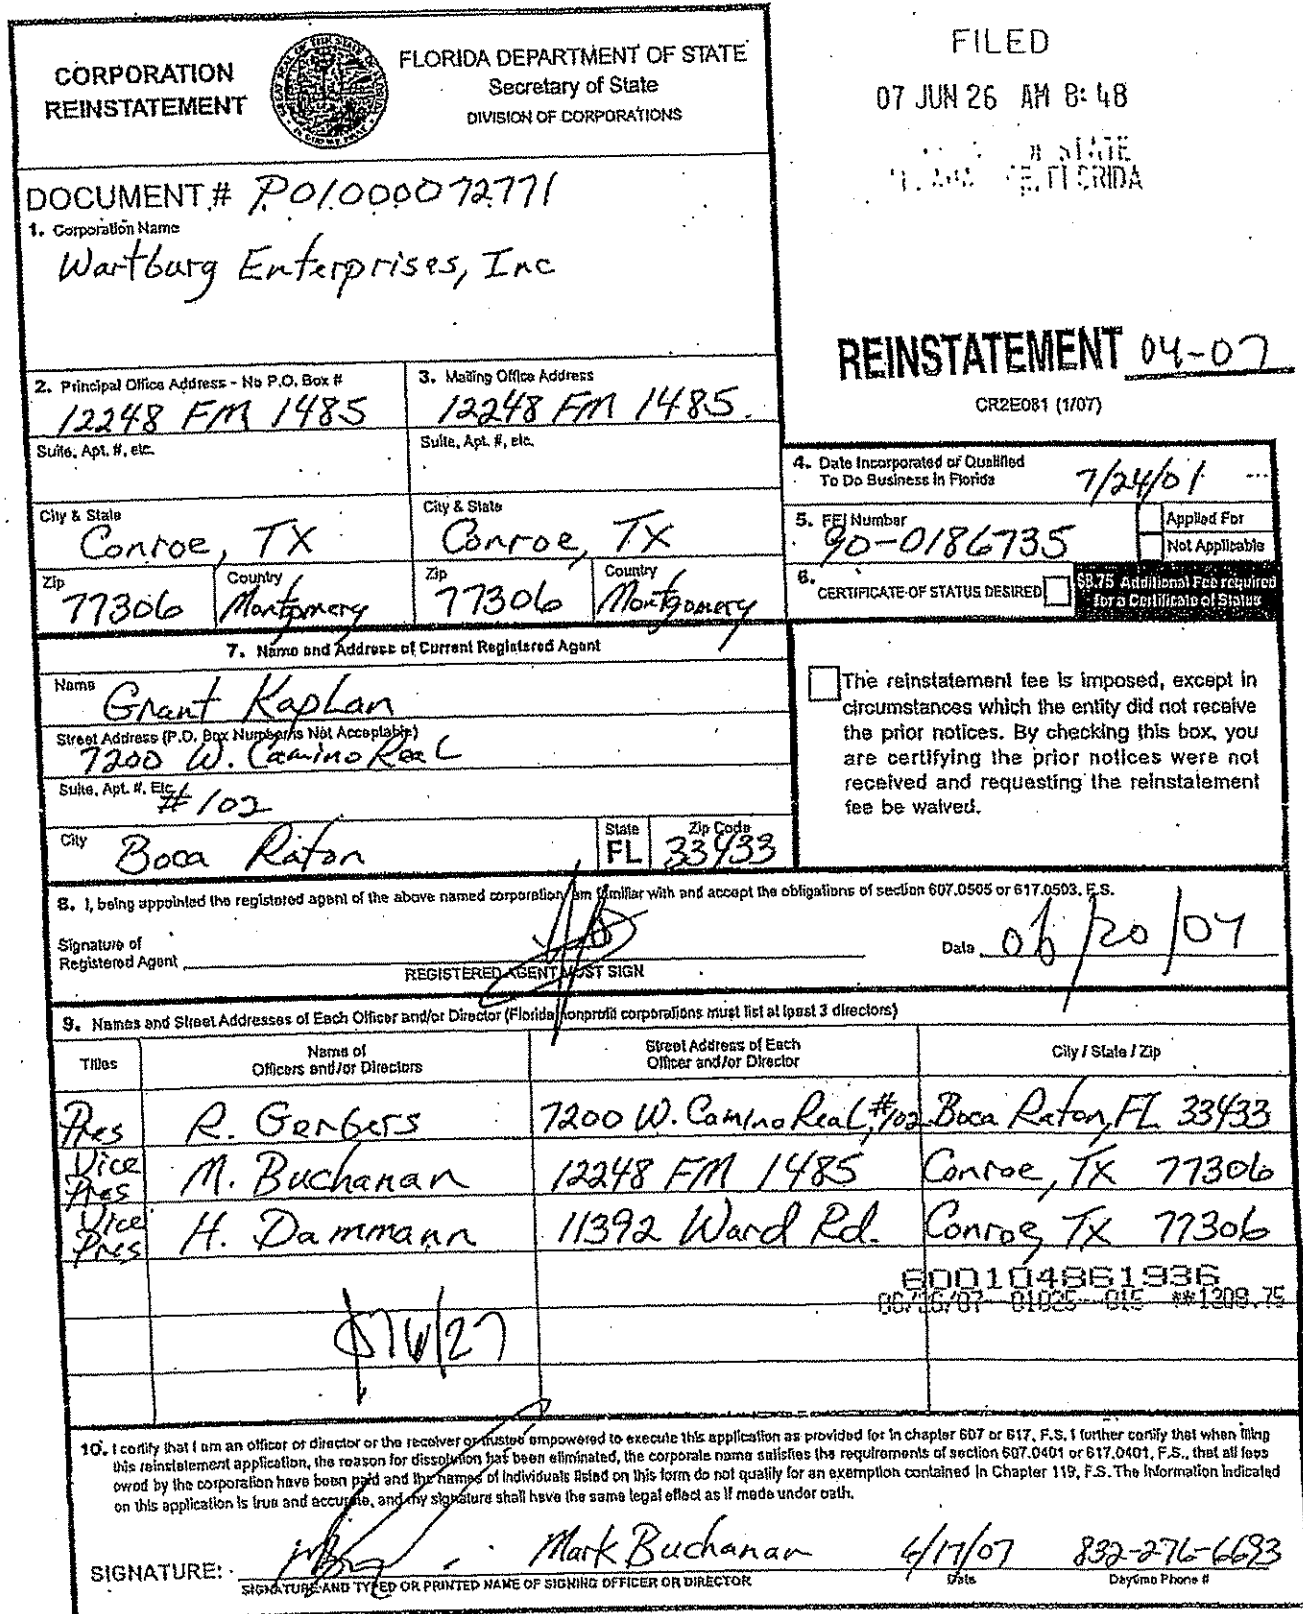 CORPORATION
REINSTATEMENT
FLORIDA DEPARTMENT OF STATE
Secretary of State
DIVISION OF CORPORATIONS
FILED
07 JUN 26 AM 8:48
STATE
FLORIDA
DOCUMENT # P01000072771
1. Corporation Name
Wartburg Enterprises, Inc
REINSTATEMENT 04-07
CR2E081 (1/07)
2. Principal Office Address - No P.O. Box #
12248 FM 1485
3. Mailing Office Address
12248 FM 1485
Suite, Apt. #, etc.
Suite, Apt. #, etc.
City & State
Conroe, TX
City & State
Conroe, TX
Zip
77306
Country
Montgomery
Zip
77306
Country
Montgomery
4. Date Incorporated or Qualified
To Do Business in Florida
7/24/01
5. FEI Number
90-0186735
Applied For
Not Applicable
6. CERTIFICATE OF STATUS DESIRED
$8.75 Additional Fee required
for a Certificate of Status
7. Name and Address of Current Registered Agent
Name
Grant Kaplan
Street Address (P.O. Box Number is Not Acceptable)
7200 W. Camino Real
Suite, Apt. #, Etc.
#102
City
Boca Raton
State
FL
Zip Code
33433
The reinstatement fee is imposed, except in
circumstances which the entity did not receive
the prior notices. By checking this box, you
are certifying the prior notices were not
received and requesting the reinstatement
fee be waived.
8. I, being appointed the registered agent of the above named corporation, am familiar with and accept the obligations of section 607.0505 or 617.0503, F.S.
Signature of
Registered Agent
REGISTERED AGENT MUST SIGN
Date 06/20/07
9. Names and Street Addresses of Each Officer and/or Director (Florida nonprofit corporations must list at least 3 directors)
Titles
Name of
Officers and/or Directors
Street Address of Each
Officer and/or Director
City / State / Zip
Pres R. Gerbers 7200 W. Camino Real, #102 Boca Raton, FL 33433
Vice Pres M. Buchanan 12248 FM 1485 Conroe, TX 77306
Vice Pres H. Dammann 11392 Ward Rd. Conroe, TX 77306
600104861936
01025--015 **1208.75
10. I certify that I am an officer or director or the receiver or trustee empowered to execute this application as provided for in chapter 607 or 617, F.S. I further certify that when filing
this reinstatement application, the reason for dissolution has been eliminated, the corporate name satisfies the requirements of section 607.0401 or 617.0401, F.S., that all fees
owed by the corporation have been paid and the names of individuals listed on this form do not qualify for an exemption contained in Chapter 119, F.S. The information indicated
on this application is true and accurate, and my signature shall have the same legal effect as if made under oath.
SIGNATURE:
Mark Buchanan 6/17/07 832-276-6693
SIGNATURE AND TYPED OR PRINTED NAME OF SIGNING OFFICER OR DIRECTOR
Date
Daytime Phone #